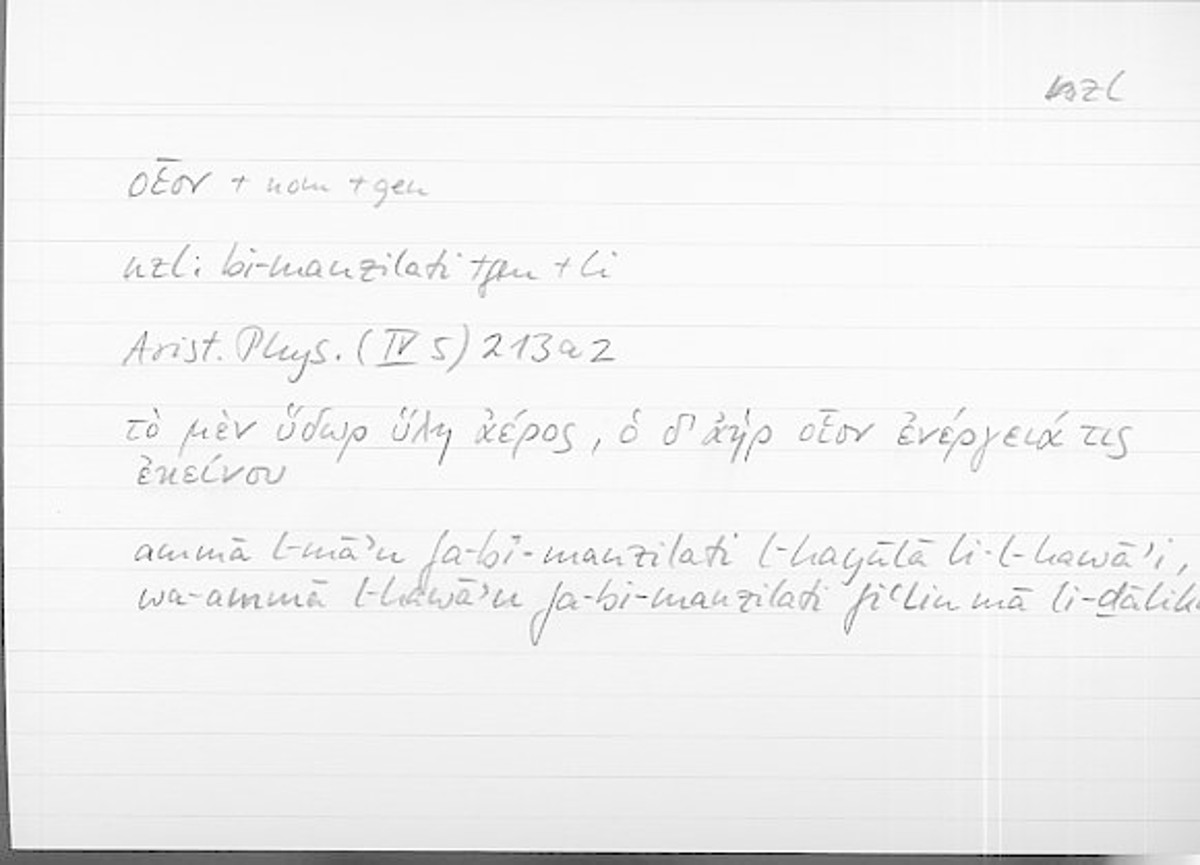 nzl
οἷον + nom + gen
nzl: bi-manzilati +gen + li
Arist. Phys. (IV 5) 213a2
τὸ μὲν ὕδωρ ὕλη ἀέρος, ὁ δ' ἀὴρ οἷον ἐνέργειά τις
ἐκείνου
ammā l-māʾu fa-bi-manzilati l-hayūlā li-l-hawāʾi,
wa-ammā l-hawāʾu fa-bi-manzilati fiʿlin mā li-ḏālik